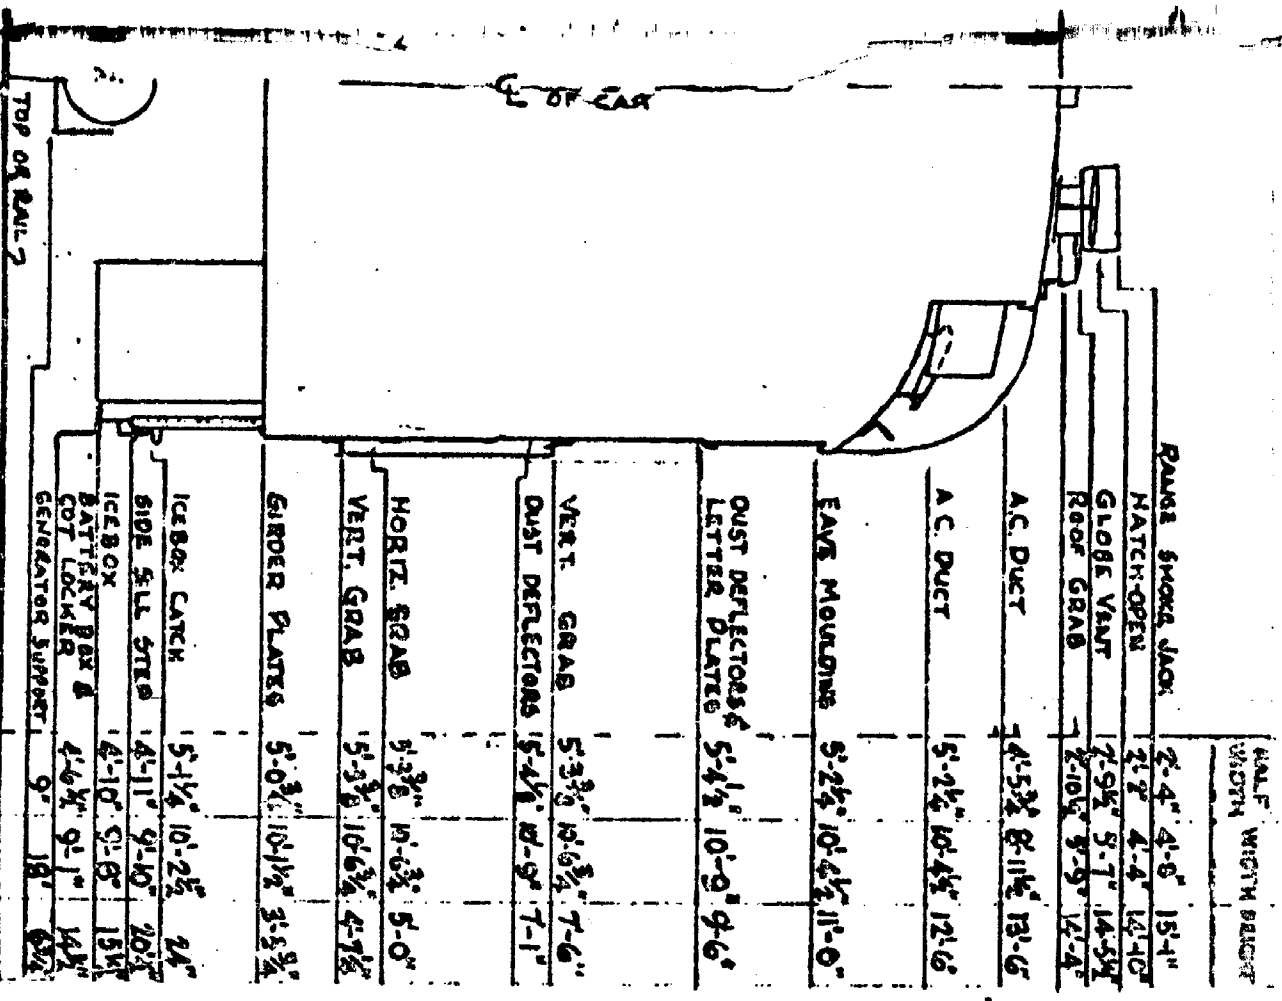 ℄ OF CAR
TOP OF RAIL
HALF WIDTH WIDTH HEIGHT
RANGE SMOKE JACK 2'-4" 4'-8" 15'-1"
HATCH-OPEN 2'-2" 4'-4" 14'-10"
GLOBE VENT 2'-9½" 5'-7"
ROOF GRAB 5'-9" 14'-4"
A.C. DUCT 4'-5¾" 8'-11½" 13'-6"
A.C. DUCT 5'-2¼" 10'-4½" 12'-6"
EAVE MOULDING 5'-2¼" 10'-4½" 11'-0"
DUST DEFLECTORS &
LETTER PLATES 5'-4½" 10'-9" 9'-6"
VERT. GRAB 5'-3⅜" 10'-6¾" 7'-6"
DUST DEFLECTORS 5'-4½" 10'-9" 7'-1"
HORIZ. GRAB 5'-3⅜" 10'-6¾" 5'-0"
VERT. GRAB 5'-3⅜" 10'-6¾"
GIRDER PLATES 5'-0¾" 10'-1½"
ICEBOX CATCH 5'-1¼" 10'-2½" 24"
SIDE SILL STEP 4'-11" 9'-10"
ICEBOX 4'-10" 9'-8"
BATTERY BOX &
COT LOCKER 4'-6½" 9'-1"
GENERATOR SUPPORT 9" 18"